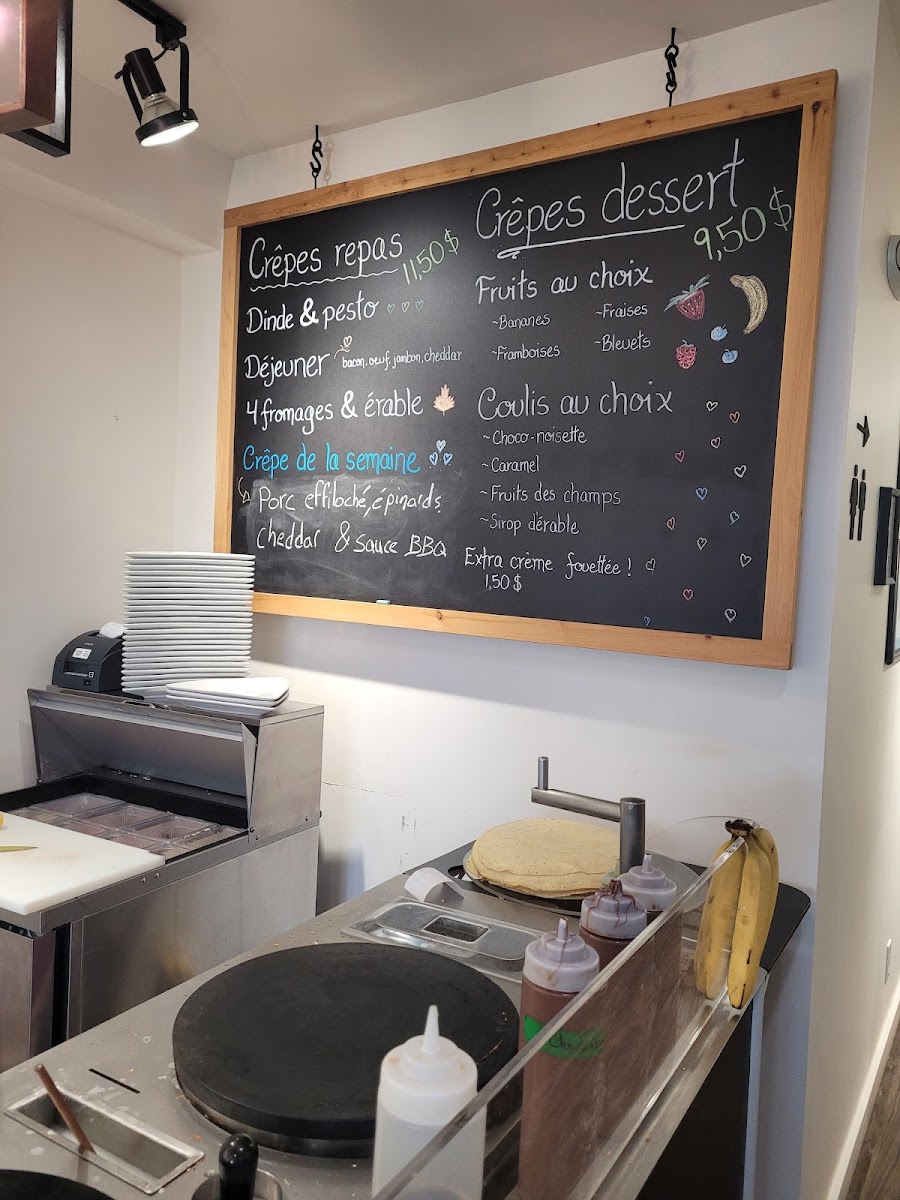 Crêpes repas
11,50 $
Dinde & pesto
Déjeuner ~bacon, oeuf, jambon, cheddar
4 fromages & érable
Crêpe de la semaine
Porc effiloché, épinards
cheddar & sauce BBQ
Crêpes dessert
9,50 $
Fruits au choix
~Bananes
~Fraises
~Framboises
~Bleuets
Coulis au choix
~Choco-noisette
~Caramel
~Fruits des champs
~Sirop d'érable
Extra crème fouettée !
1,50 $